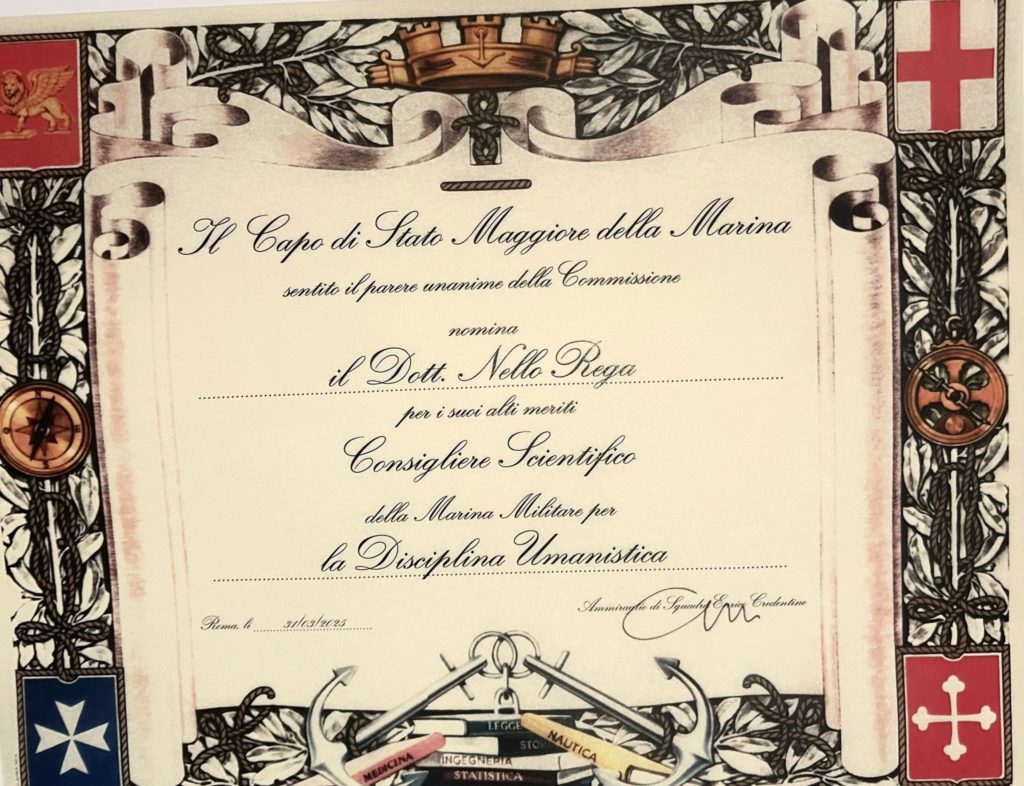 Il Capo di Stato Maggiore della Marina
sentito il parere unanime della Commissione
nomina
il Dott. Nello Rega
per i suoi alti meriti
Consigliere Scientifico
della Marina Militare per
la Disciplina Umanistica
Ammiraglio di Squadra Enrico Credentino
Roma, lì 31/03/2025
LEGGE
STOR
NAUTICA
MEDICINA
INGEGNERIA
STATISTICA